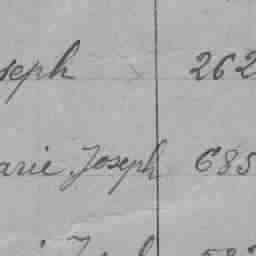 seph 262
arie Joseph 685